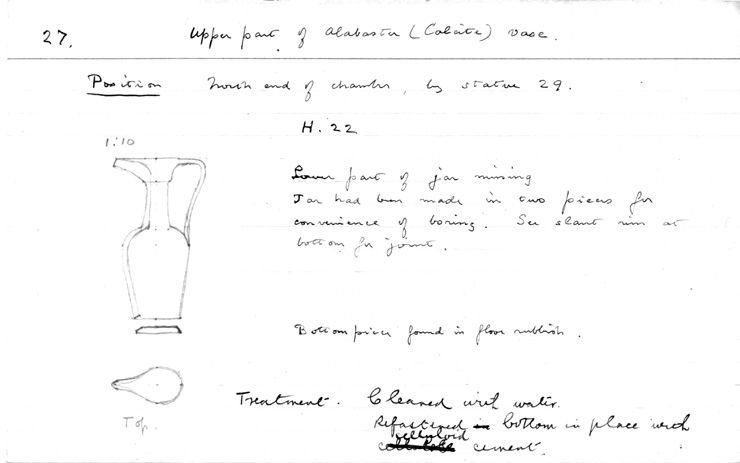 27. Upper part of Alabaster (Calcite) vase.
Position North end of chamber, by statue 29.
H. 22
1:10
Lower part of jar missing
Jar had been made in two pieces for
convenience of boring. See slant rim at
bottom for joint.
Bottom piece found in floor rubbish.
Treatment. Cleaned with water.
Refastened bottom in place with
celluloid
cement.
Top.